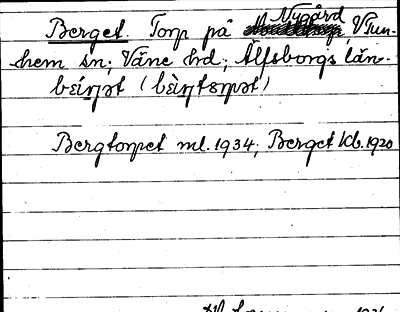 Berget. Torp på Nygård, Vtun-
hem sn; Väne hd; Älfsborgs län.
bæ̀rjət (bæ̀rjtɔrpət)
Bergtorpet ml. 1934; Berget kb. 1920